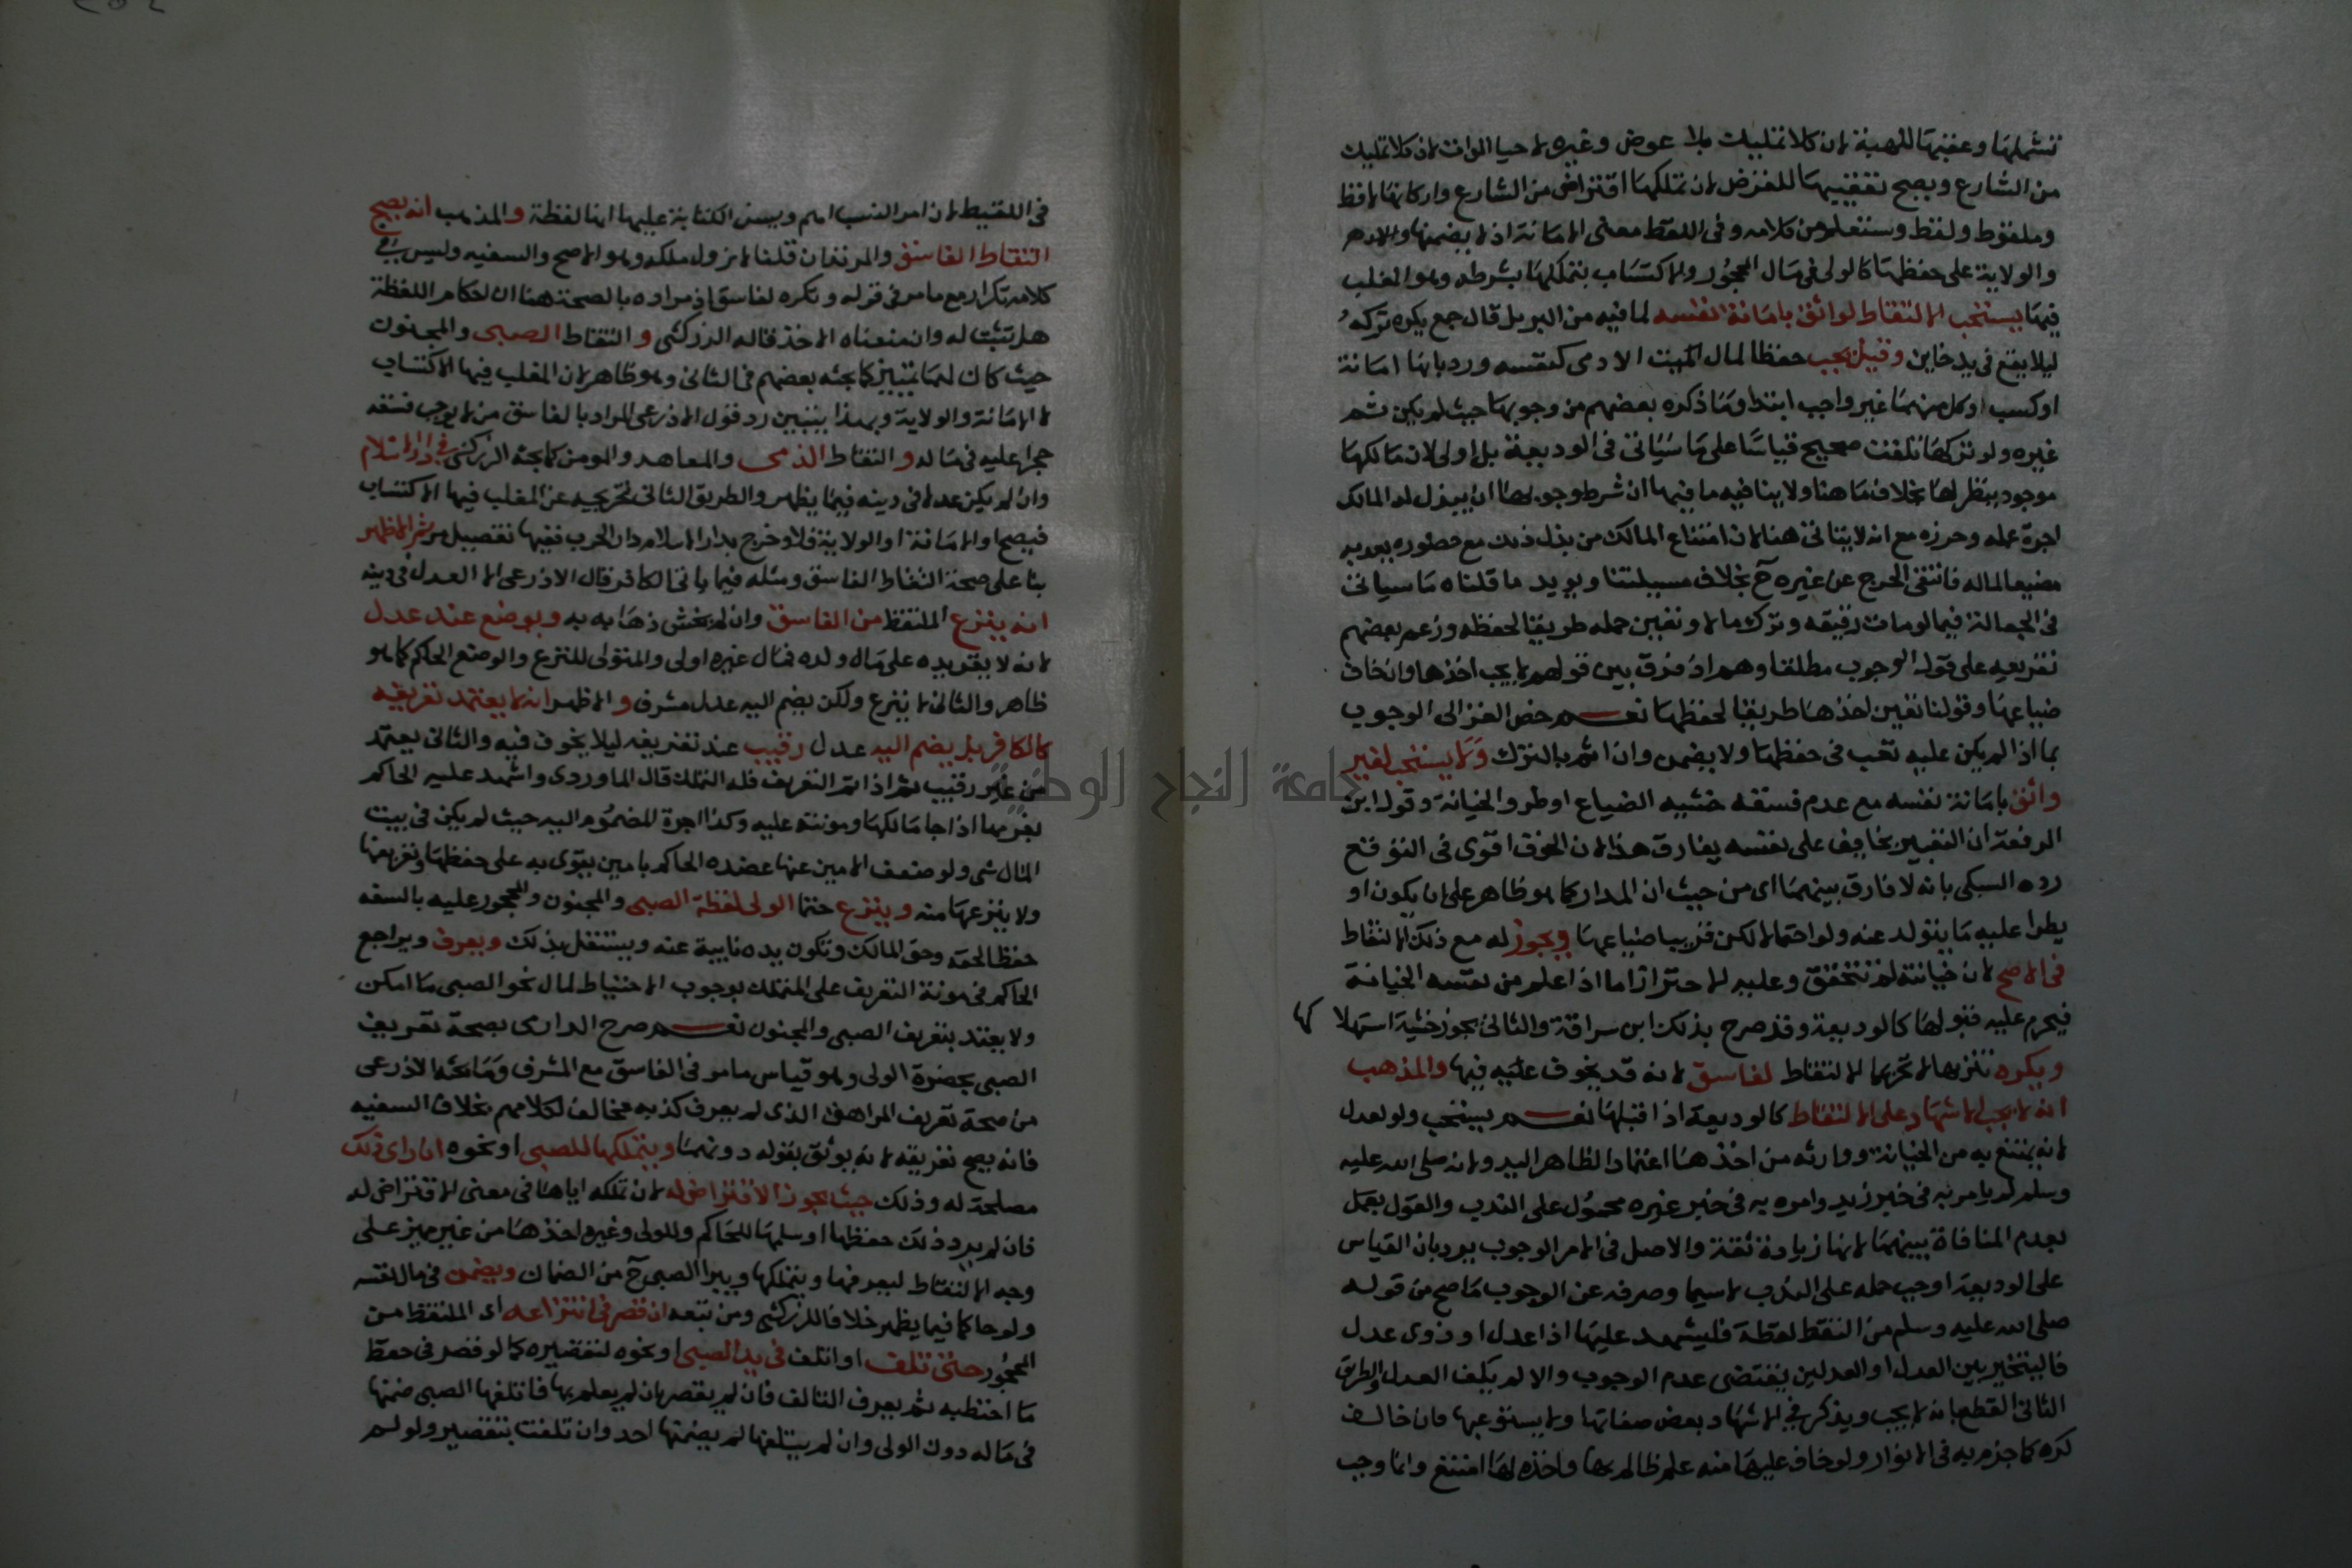 تشملها وعقبها للهبة لان كلا تمليك بلا عوض وغيره لاحيا الموات لان كلا تمليك
من الشارع ويصح تعقيبها للقرض لان تملكها اقتراض من الشارع واركانها لاقط
وملقوط ولقط وستعلم من كلامه وفي اللقط معنى الامانة اذ لا يضمنها
والولاية على حفظها كالولي في مال المحجور والاكتساب بتملكها بشرطه وهو المغلب
فيها يستحب الالتقاط لواثق بامانة نفسه لما فيه من البر بل قال جمع يكره تركه
ليلا يقع في يد خاين وقيل يجب حفظا لمال الادمي كنفسه ورد بانها امانة
او كسب وكل منهما غير واجب ابتدا وما ذكره بعضهم من وجوبها حيث لم يكن ثم
غيره ولو تركها تلفت صحيح قياسا على ما سياتي في الوديعة بل اولى لان مالكها
موجود ينظر لها بخلاف ما هنا ولا ينافيه ما فيها ان شرط وجوبها ان يبذل له المالك
اجرة عمله وحرزه مع انه لا يتاتى هنا لان امتناع المالك من بذل ذلك مع حضوره يعد به
مضيعا لماله فانتفى الحرج عن غيره ح بخلاف مسيلتنا ويويد ما قلناه ما سياتي
في الجعالة فيما لو مات رفيقه وترك مالا وتعين حمله طريقا لحفظه وزعم بعضهم
تفريعه على قوله الوجوب مطلقا وهم اذ فرق بين قولهم لا يجب اخذها وان خاف
ضياعها وقولنا تعين اخذها طريقا لحفظها نعم خص الغزالي الوجوب
بما اذا لم يكن عليه تعب في حفظها ولا يضمن وان اثم بالترك ولا يستحب لغير
واثق بامانة نفسه مع عدم فسقه خشيه الضياع او طرو الخيانة وقول ابن
الرفعة ان التعبير بخايف على نفسه يفارق هذا لان الخوف اقوى في التوقع
رده السبكي بانه لا فارق بينهما اي من حيث ان المدار كما هو ظاهر على ان يكون او
يطرا عليه ما يتولد عنه ولو احتمالا لكن قريبا ضياعها ويجوز له مع ذلك الالتقاط
في الاصح لان خيانته لم تتحقق وعليه الاحتراز اما اذا علم من نفسه الخيانة
فيحرم عليه قبولها كالوديعة وقد صرح بذلك ابن سراقة والثاني يجوز خشية استهلاكها
ويكره تنزيها لا تحريما الالتقاط لفاسق لانه قد يخوف عليه فيها والمذهب
انه لا يجب الاشهاد على الالتقاط كالوديعة اذا قبلها نعم يستحب ولو لعدل
لانه يمتنع به من الخيانة ووارثه من اخذها اعتمادا لظاهر اليد ولانه صلى الله عليه
وسلم لم يامر به في خبر زيد وامره به في خبر غيره محمول على الندب والقول بعمل
بعدم المنافاة بينهما لانها زيادة ثقة والاصل في الامر الوجوب يرد بان القياس
على الوديعة اوجب حمله على الندب لا سيما وصرفه عن الوجوب ما صح من قوله
صلى الله عليه وسلم من التقط لقطة فليشهد عليها ذا عدل او ذوي عدل
فالتخيير بين العدل والعدلين يقتضي عدم الوجوب والا لم يكف العدل والطريق
الثاني القطع بانه لا يجب ويذكر في الاشهاد بعض صفاتها ولا يستوعبها فان خالف
كره كما جزم به في الانوار ولو خاف عليها منه علم ظالم بها واخذه لها امتنع وانما وجب
في اللقيط لان امر النسب اهم ويسن الكتابة عليها انها لقطة والمذهب انه يصح
التقاط الفاسق والمرتد ان قلنا لا يزول ملكه وهو الاصح والسفيه وليس في
كلامه تكرار مع ما مر في قوله ويكره لفاسق اذ مراده بالصحة هنا ان احكام اللقطة
هل تثبت له وان منعناه الاخذ قاله الزركشي والتقاط الصبي والمجنون
حيث كان لهما تمييز كما بحثه بعضهم في الثاني وهو ظاهر لان المغلب فيها الاكتساب
لا الامانة والولاية وبهذا يتبين رد قول الاذرعي المراد بالفاسق من لا يوجب فسقه
حجرا عليه في ماله والتقاط الذمي والمعاهد والمومن كما بحثه الزركشي في دار الاسلام
وان لم يكن عدلا في دينه فيما يظهر والطريق الثاني تخريجه عن المغلب فيها الاكتساب
فيصح او الامانة والولاية فلا وخرج بدار الاسلام دار الحرب ففيها تفصيل مر ثم الاظهر
بنا على صحة التقاط الفاسق ومثله فيما ياتي الكافر قال الاذرعي الا العدل في دينه
انه ينزع الملتقط من الفاسق وان لم يخش ذهابه به ويوضع عند عدل
لانه لا يقر يده على مال ولده فمال غيره اولى والمتولي للنزع والوضع الحاكم كما هو
ظاهر والثاني لا ينزع ولكن يضم اليه عدل مشرف والاظهر انه لا يعتمد تعريفه
كالكافر بل يضم اليه عدل رقيب عند تعريفه ليلا يخوف فيه والثاني يعتمد
من غير رقيب ثم اذا تم التعريف فله التملك قال الماوردي واشهد عليه الحاكم
بغرمها اذا جا مالكها ومونته عليه وكذا اجرة المضموم اليه حيث لم يكن في بيت
المال شي ولو ضعف الامين عنها عضده الحاكم بامين يقوى به على حفظها وتعريفها
ولا ينزعها منه وينزع حتما الولي لقطة الصبي والمجنون والمحجور عليه بالسفه
حفظا لحقه وحق المالك وتكون يده نايبة عنه ويستقل بذلك ويعرف ويراجع
الحاكم في مونة التعريف على المتملك لوجوب الاحتياط لمال نحو الصبي ما امكن
ولا يعتد بتعريف الصبي والمجنون نعم صرح الدارمي بصحة تعريف
الصبي بحضرة الولي وهو قياس ما مر في الفاسق مع المشرف وما بحثه الاذرعي
من صحة تعريف المراهق الذي لم يعرف كذبه مخالف لكلامهم بخلاف السفيه
فانه يصح تعريفه لانه يوثق بقوله دونهما ويتملكها للصبي او نحوه ان راى ذلك
مصلحة له وذلك حيث يجوز الاقتراض له لان تملكه اياها في معنى الاقتراض له
فان لم ير ذلك حفظها او سلمها للحاكم وللولي وغيره اخذها من غير مميز على
وجه الالتقاط ليعرفها ويتملكها ويبرا الصبي ح من الضمان ويضمن في مال نفسه
ولو حاكما فيما يظهر خلافا للزركشي ومن تبعه ان قصر في انتزاعه اي الملتقط من
المحجور حتى تلف او اتلف في يد الصبي او نحوه لتقصيره كما لو قصر في حفظ
ما احتطبه ثم يعرف التالف فان لم يقصر بان لم يعلم بها فاتلفها الصبي ضمنها
في ماله دون الولي وان لم يتلفها لم يضمنها احد وان تلفت بتقصير ولو لم
جامعة النجاح الوطنية